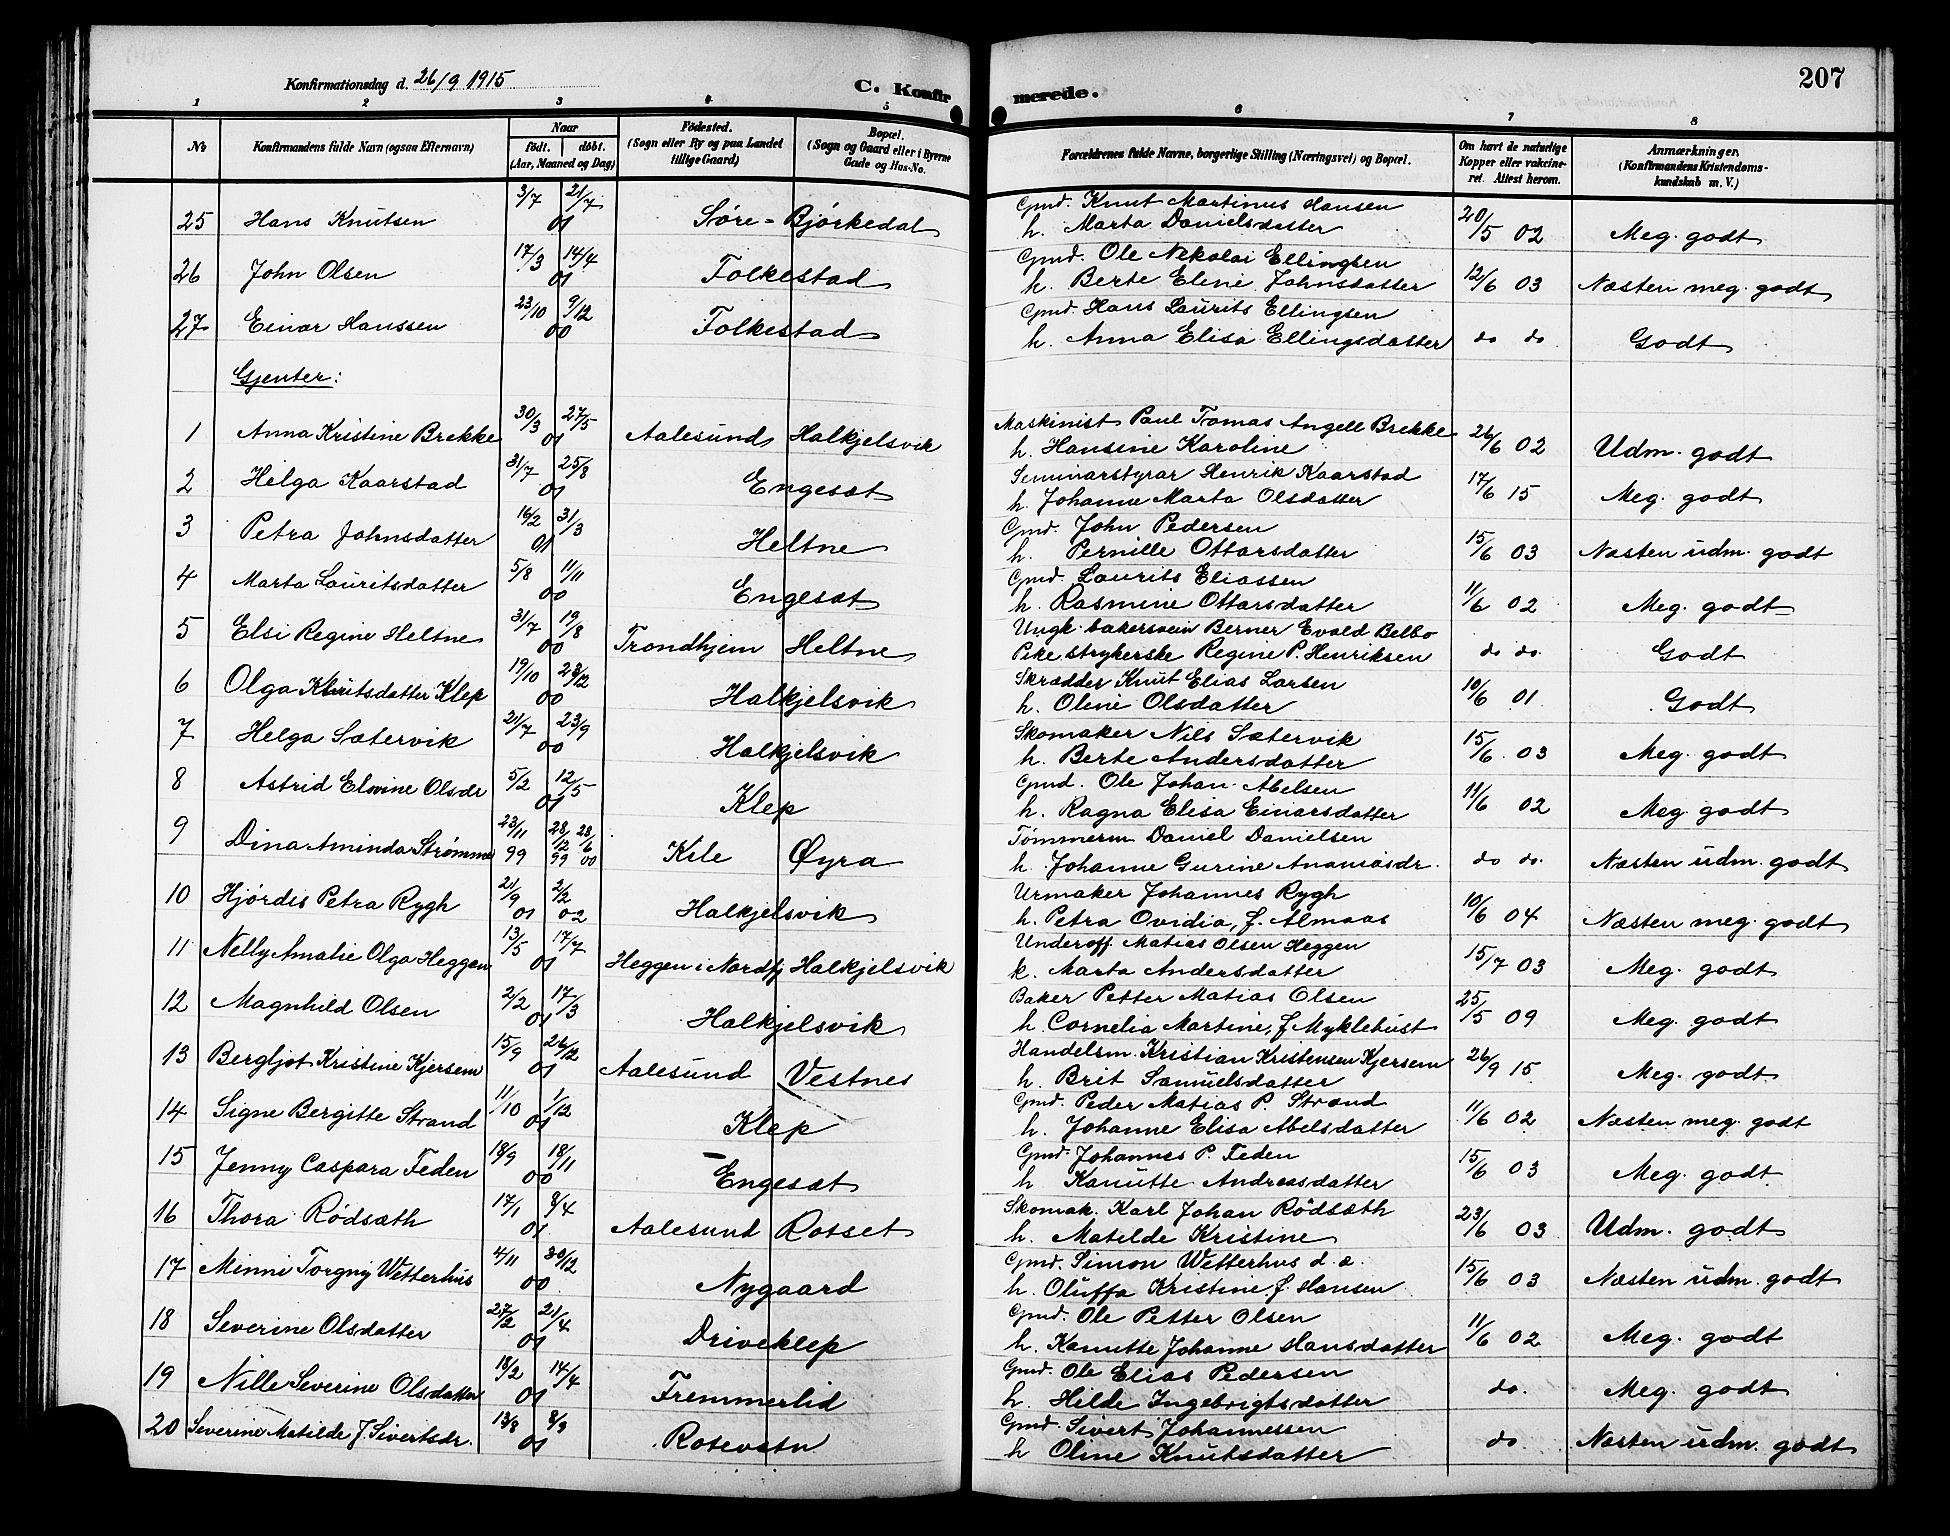 Konfirmationsdag d. 26/9 1915
C. Konfirmerede.
207
1 2 3 4 5 6 7 8
No
Konfirmandens fulde Navn (ogsaa Efternavn)
Naar
født. døbt.
(Aar, Maaned og Dag)
Fødested.
(Sogn eller By og paa Landet
tillige Gaard)
Bopæl.
(Sogn og Gaard eller i Byerne
Gade og Hus-No.
Forældrenes fulde Navne, borgerlige Stilling (Næringsvei) og Bopæl.
Om havt de naturlige
Kopper eller vakcine-
ret. Attest herom.
Anmærkninger.
(Konfirmandens Kristendoms-
kundskab m. V.)
25 Hans Knutsen 3/7 21/7 01 Søre-Bjørkedal Gmd. Knut Martinus Hansen
h. Marta Danielsdatter 20/5 02 Meg. godt
26 John Olsen 17/3 14/4 01 Folkestad Gmd. Ole Nikolai Ellingsen
h. Berte Eline Johnsdatter 12/6 03 Næsten meg. godt
27 Einar Hanssen 23/10 9/12 00 Folkestad Gmd. Hans Laurits Ellingsen
h. Anna Elisa Ellingsdatter do do Godt
Gjenter:
1 Anna Kristine Brekke 30/3 27/5 01 Aalesund Halkjelsvik Maskinist Paul Tomas Angell Brekke
h. Hansine Karoline 26/6 02 Udm. godt
2 Helga Kaarstad 31/7 25/8 01 Engeset Seminarstyrar Henrik Kaarstad
h. Johanne Marta Olsdatter 17/6 15 Meg. godt
3 Petra Johnsdatter 16/2 31/3 01 Heltne Gmd. John Pedersen
h. Pernille Ottarsdatter 15/6 03 Næsten udm. godt
4 Marta Lauritsdatter 5/8 11/11 00 Engesæt Gmd. Laurits Eliassen
h. Rasmine Ottarsdatter 11/6 02 Meg. godt
5 Elsi Regine Heltne 31/7 19/8 00 Trondhjem Heltne Ungk. bakersvein Berner Evald Belbo
Pike strykerske Regine P. Henriksen do do Godt
6 Olga Knutsdatter Klep 19/10 28/12 00 Halkjelsvik Skrædder Knut Elias Larsen
h. Oline Olsdatter 10/6 01 Godt
7 Helga Sætervik 21/7 23/9 00 Halkjelsvik Skomaker Nils Sætervik
h. Berte Andersdatter 15/6 03 Meg. godt
8 Astrid Elovine Olsdr 5/2 12/5 01 Klep Gmd. Ole Johan Abelsen
h. Ragna Elisa Einarsdatter 11/6 02 Meg. godt
9 Dina Aminda Strømme 23/11 99 28/12 99 28/6 00 Kile Øyra Tømmerm Daniel Danielsen
h. Johanne Gurine Ananiasdr. do do. Næsten udm. godt
10 Hjørdis Petra Rygh 21/9 01 2/2 02 Halkjelsvik Urmaker Johannes Rygh
h. Petra Ovidia, f. Almaas 10/6 04 Næsten meg. godt
11 Nelly Amalie Olga Heggen 13/5 17/7 01 Heggen i Nordfj Halkjelsvik Underoff. Matias Olsen Heggen
k. Marta Andersdatter 15/7 03 Meg. godt
12 Magnhild Olsen 2/2 17/3 01 Halkjelsvik Baker Petter Matias Olsen
h. Cornelia Martine, f Myklebust 25/5 09 Meg. godt
13 Bergljot Kristine Kjersem 15/9 26/12 01 Aalesund Vestnes Handelsm. Kristian Kristensen Kjersem
h. Brit Samuelsdatter 26/9 15 Meg. godt
14 Signe Bergitte Strand 11/10 1/12 01 Klep Gmd. Peder Matias P. Strand
h. Johanne Elisa Abelsdatter 11/6 02 Næsten meg. godt
15 Jenny Caspara Feden 18/9 18/11 00 Engesæt Gmd. Johannes P. Feden
h Kanutte Andreasdatter 15/6 03 Meg. godt
16 Thora Rødsæth 17/1 8/4 01 Aalesund Rotset Skomak. Karl Johan Rødsæth
h. Matilde Kristine 23/6 03 Udm. godt
17 Minni Torgny Wetterhus 4/11 30/12 00 Nygaard Gmd. Simon Wetterhus d.æ.
h. Oluffa Kristine f. Hansen 15/6 03 Næsten udm. godt
18 Severine Olsdatter 27/2 21/4 01 Driveklep Gmd. Ole Petter Olsen
h. Kanutte Johanne Hansdatter 11/6 02 Meg. godt
19 Nille Severine Olsdatter 18/2 14/4 01 Fremmerlid Gmd. Ole Elias Pedersen
h. Helde Ingebrigtsdatter do. Meg. godt
20 Severine Matilde J. Sivertsdr. 01 Rotevatn Gmd. Sivert Johannessen
h Oline Knutsdatter do Næsten udm. godt